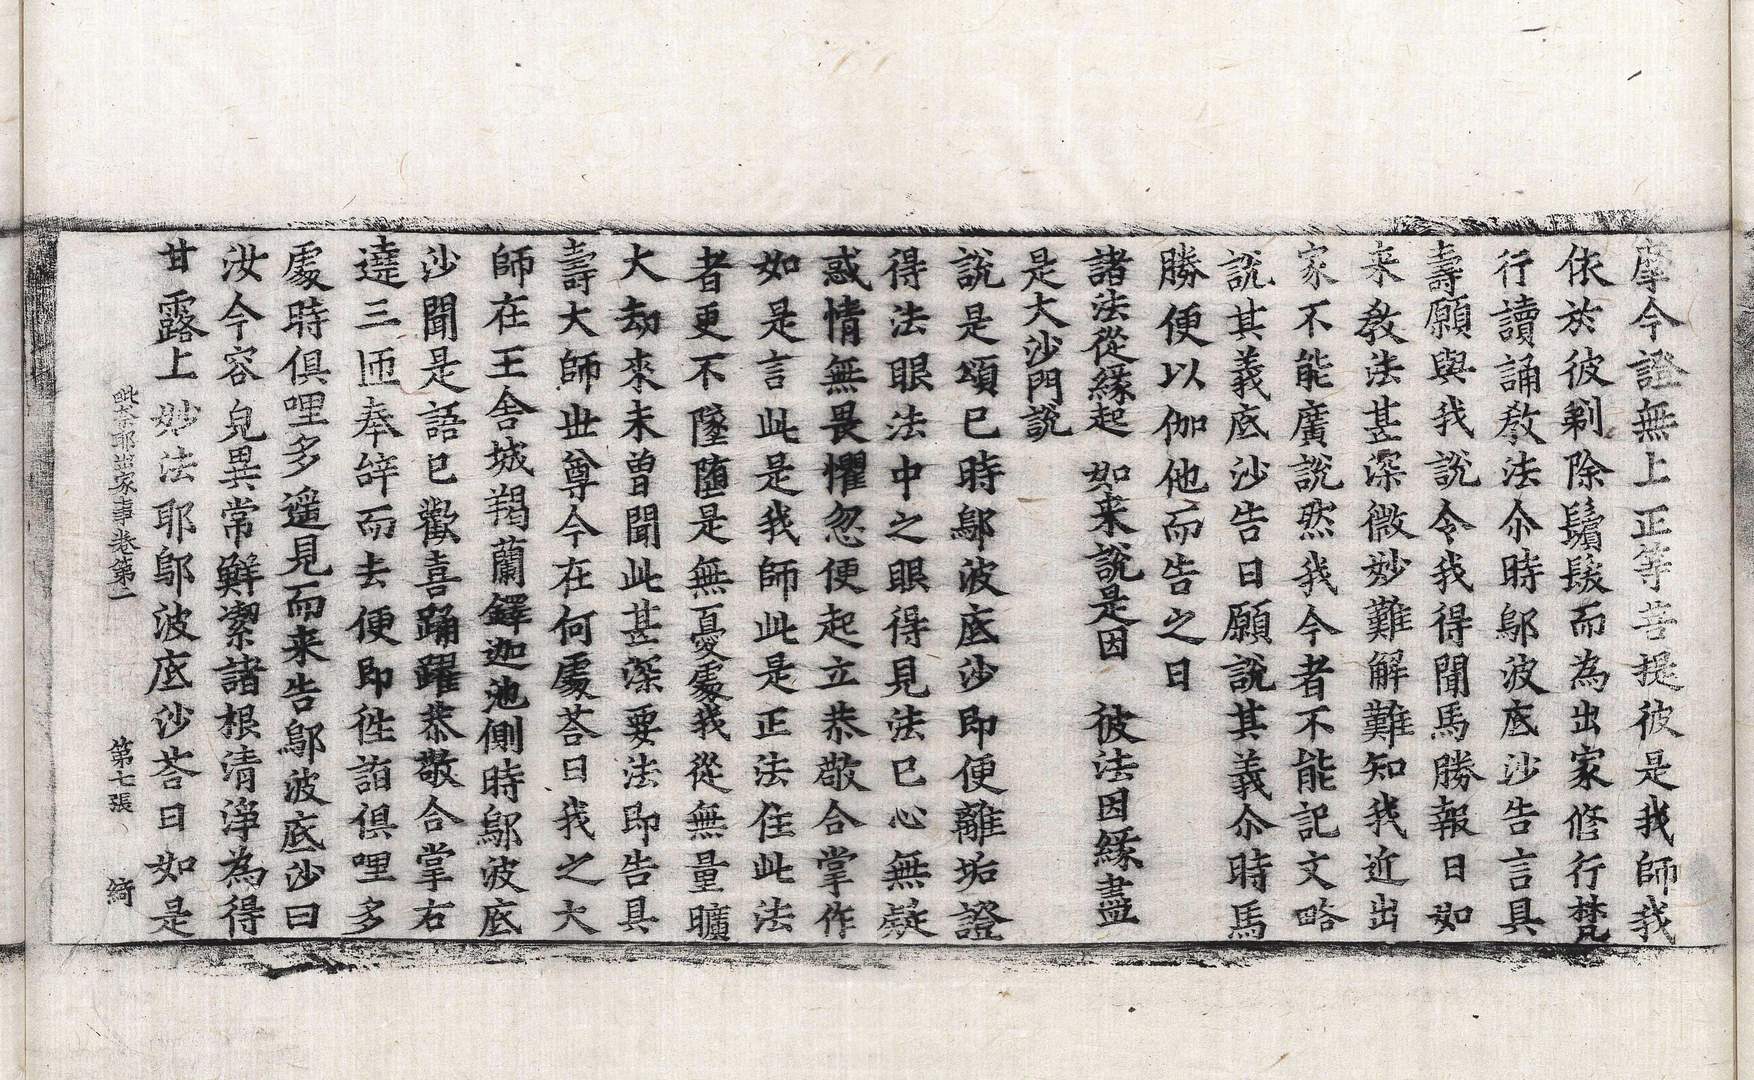 摩今證無上正等菩提彼是我師我
依於彼剃除鬚髮而為出家修行梵
行讀誦教法尒時鄔波底沙告言具
壽願與我說令我得聞馬勝報日如
来教法甚深微妙難解難知我近出
家不能廣說然我今者不能記文略
說其義底沙告日願說其義尒時馬
勝便以伽他而告之日
諸法從緣起 如来說是因 彼法因緣盡
是大沙門說
說是頌已時鄔波底沙即便離垢證
得法眼法中之眼得見法已心無疑
惑情無畏懼忽便起立恭敬合掌作
如是言此是我師此是正法住此法
者更不墜墮是無憂處我從無量曠
大劫來未曾聞此甚深要法即告具
壽大師世尊今在何處荅日我之大
師在王舍城羯蘭鐸迦池側時鄔波底
沙聞是語已歡喜踊躍恭敬合掌右
遶三匝奉辝而去便即徃詣俱哩多
處時俱哩多遥見而来告鄔波底沙曰
汝今容皃異常鮮潔諸根清淨為得
甘露上妙法耶鄔波底沙荅日如是
毗奈耶出家事卷第二 第七張 綺